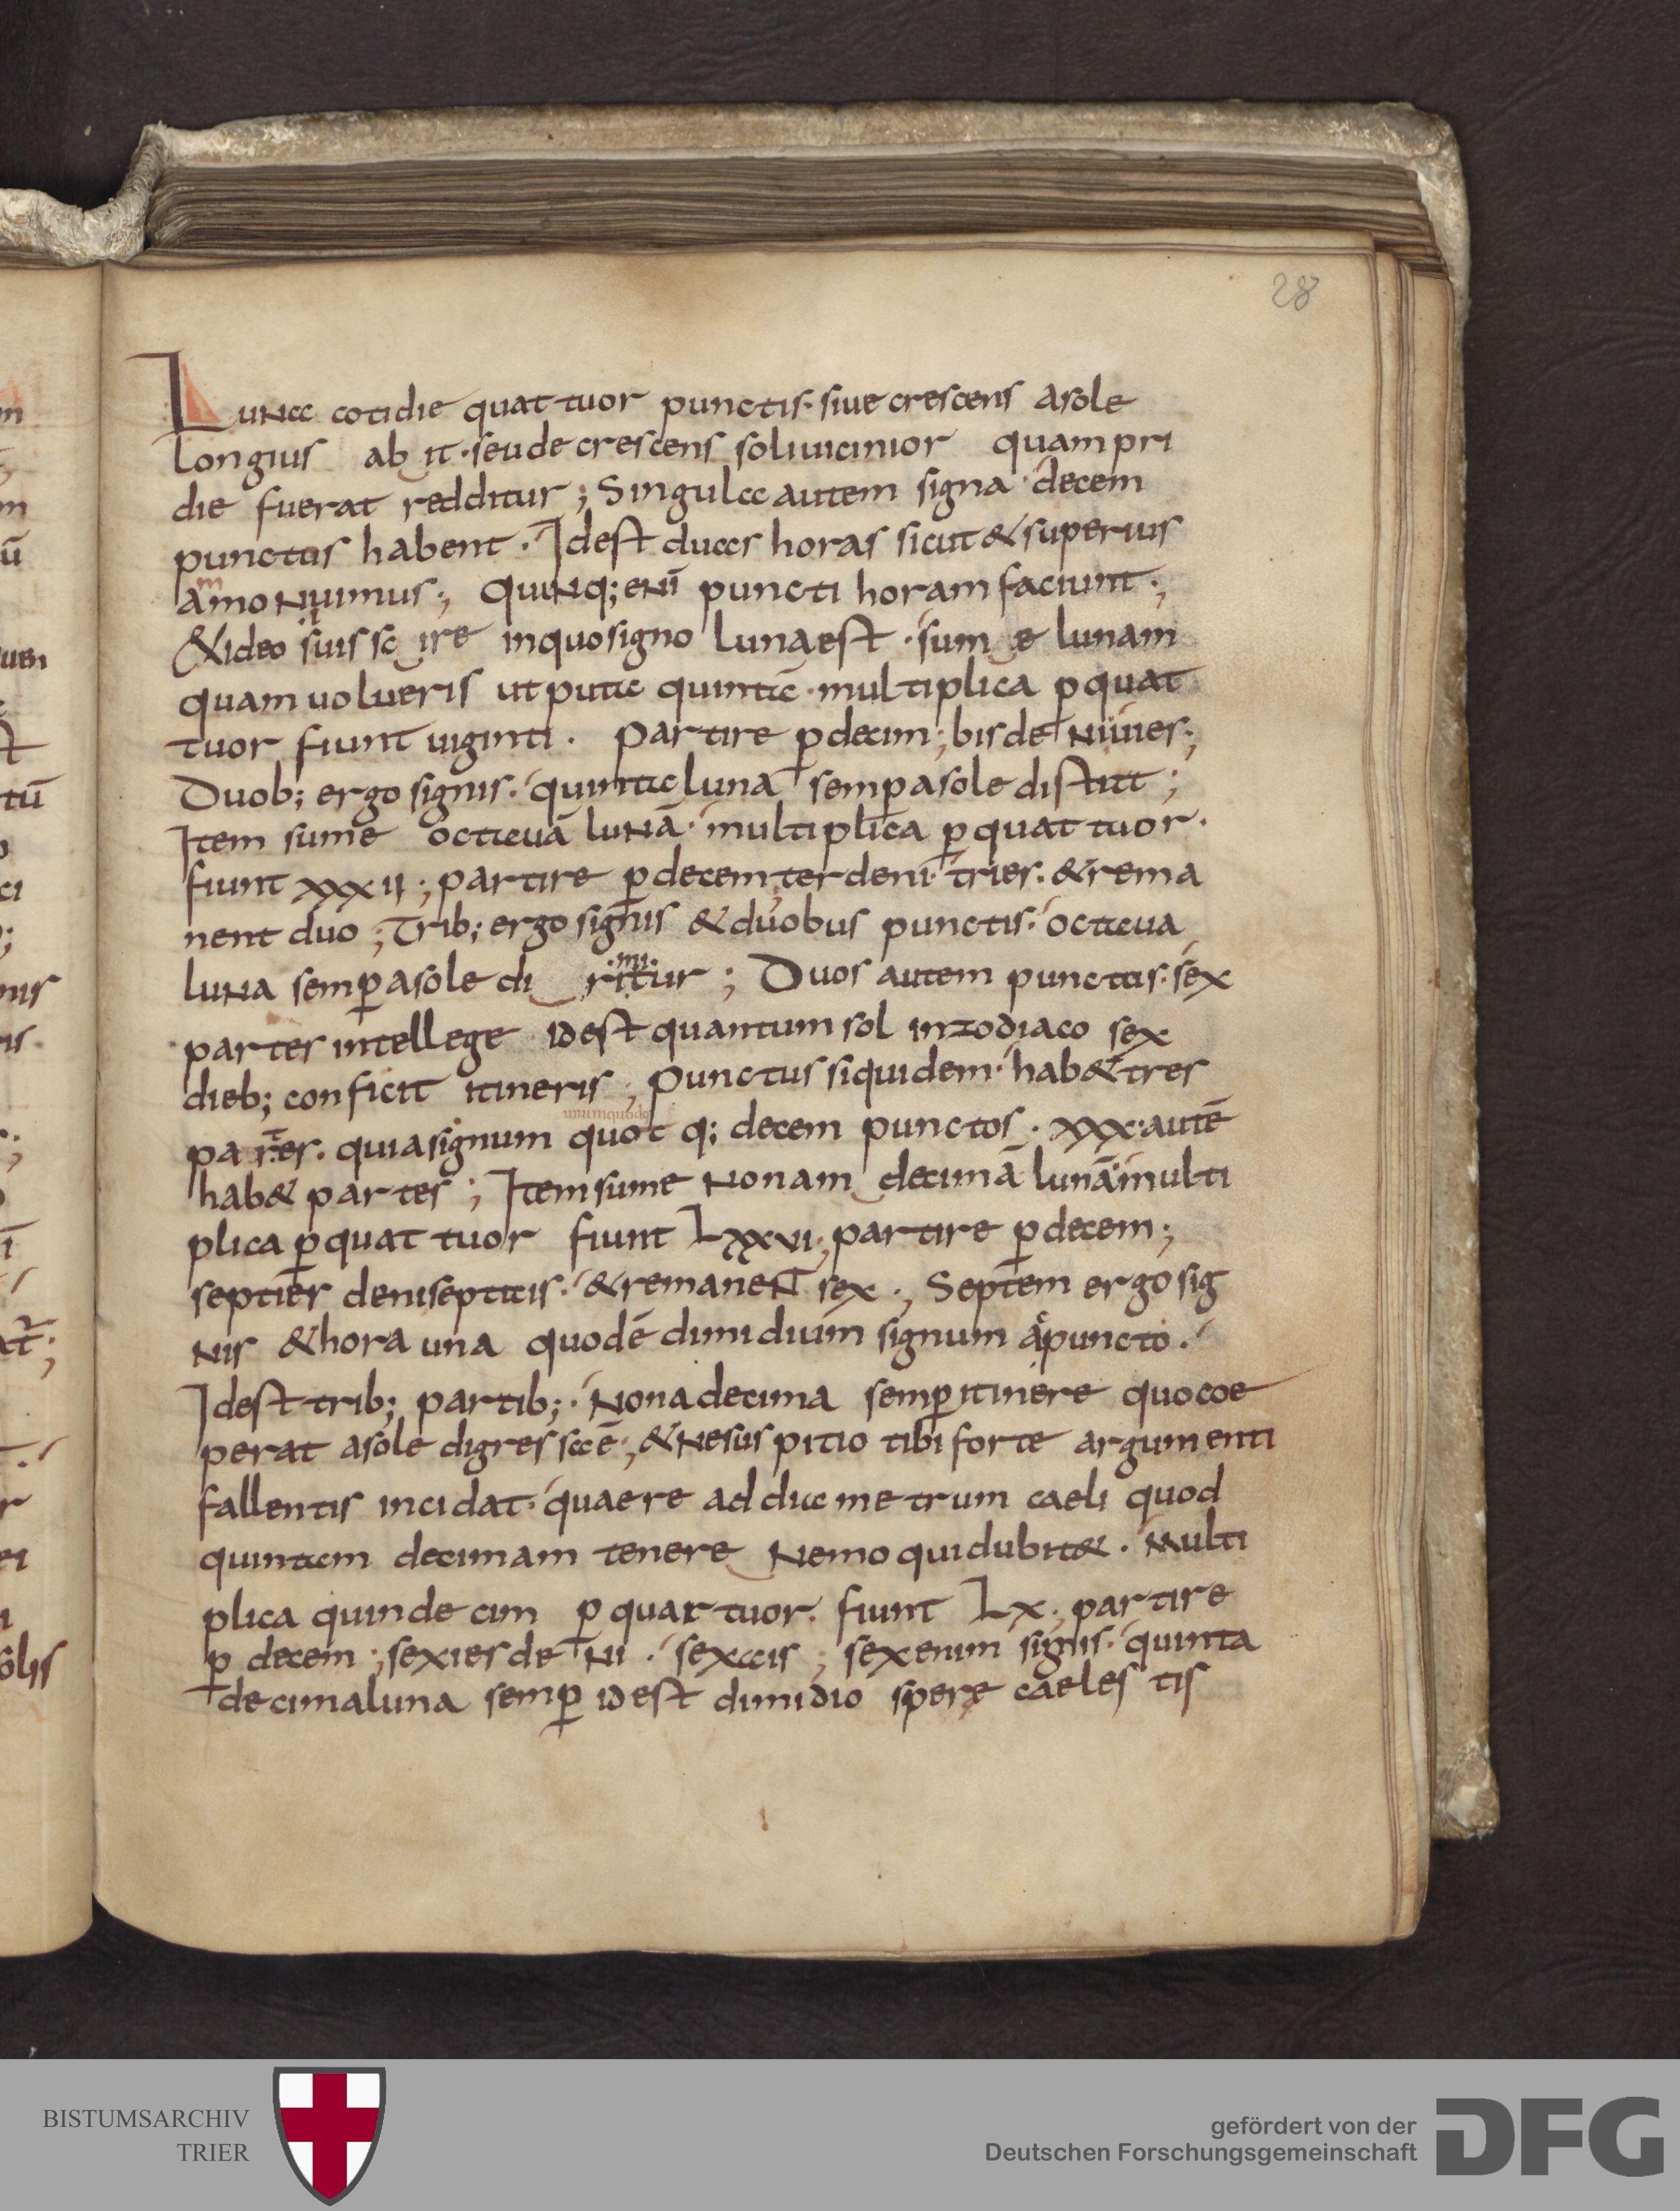 28
Luna cotidie quattuor punctis · siue crescens asole
longius ab it · seu de crescens soli uicinior quam pri
die fuerat redditur ; Singula autem signa decem
punctus habent · Idest duas horas sicut & superius
ammonuimus ; quinq; enī puncti horam faciunt ;
& ideo siuis sc ire inquo signo luna est · sum e lunam
quam uolueris ut puta quintā · multiplica ꝑ quat
tuor fiunt uiginti · partire ꝑ decim ; bis de
Duob; ergo signis · quinta luna semꝑ asole distat ;
Item sume octauā lunā · multiplica ꝑ quat tuor ·
fiunt xxxii ; partire ꝑ decem ; ter deni tries · & rema
nent duo ; Trib; ergo signis & duobus punctis · octaua
luna semꝑ asole di ritur ; Duos autem punctus · sex
partes intellege idest quantum sol in zodiaco sex
dieb; conficit itineris ; punctus siquidem · hab& tres
unumquodq
partes · quia signum quot q; decem punctos · xxx · autē
hab& partes ; Item sume nonam decimā lunā multi
plica ꝑ quat tuor fiunt Lxxvi ; partire ꝑ decem ;
septier deni septicis · & remanent sex ; Septem ergo sig
nis & hora una quodē dimidium signum a puncto ·
Idest trib; partib; · nona decima semꝑ itinere quo coe
perat asole digressa ē ; & ne suspitio tibi forte argumenti
fallentis incidat · quaere ad dia me trum caeli quod
quintam decimam tenere nemo qui dubit& · multi
plica quinde cim ꝑ quar tuor · fiunt Lx · partire
ꝑ decem ; sexies de ni · sexais ; sex enim signis · quinta
decima luna semꝑ idest dimidio sperę caeles tis
BISTUMSARCHIV
TRIER
gefördert von der
Deutschen Forschungsgemeinschaft
DFG